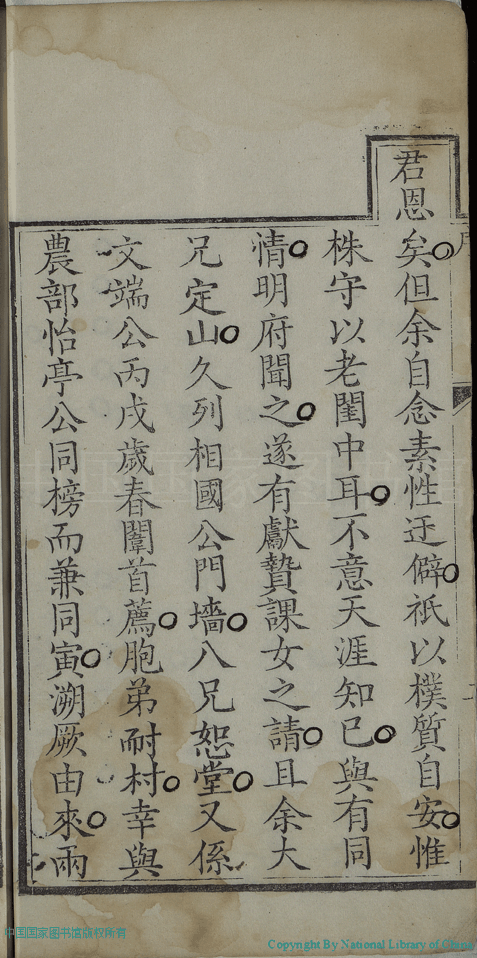 君恩矣但余自念素性迂僻祇以樸質自安惟
株守以老閨中耳不意天涯知已與有同
情明府聞之遂有獻贄課女之請且余大
兄定山久列相國公門墻八兄恕堂又係
文端公丙戌歲春闈首薦胞弟耐村幸與
農部怡亭公同榜而兼同寅溯厥由來兩
中国国家图书馆
中国国家图书馆版权所有
Copyright By National Library of China